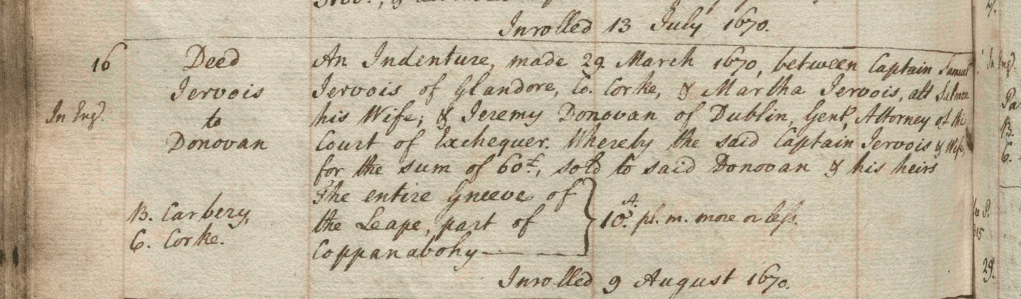 Inrolled 13 July 1670.
16 Deed An Indenture, made 29 March 1670, between Captain Samuel
Jervois Jervois of Glandore, Co. Corke, & Martha Jervois, alt Salmon
In Engd. to his Wife; & Jeremy Donovan of Dublin, Gent, Attorney of the
Donovan Court of Exchequer. Whereby the said Captain Jervois & Wife,
for the sum of 60£, sold to said Donovan & his heirs
The entire Gneeve of
B. Carbery, the Leape, part of 10A. pl. m. more or less.
C. Corke. Coppanabohy
Inrolled 9 August 1670.
29